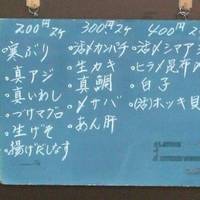 200円 2ケ
・寒ぶり
・真アジ
・真いわし
・づけマグロ
・生げそ
・揚げだしなす
300円 2ケ
・活〆カンパチ
・生カキ
・真鯛
・〆サバ
・あん肝
400円 2ケ
・活〆シマアジ
・ヒラメ昆布〆
・白子
・(活)ホッキ貝